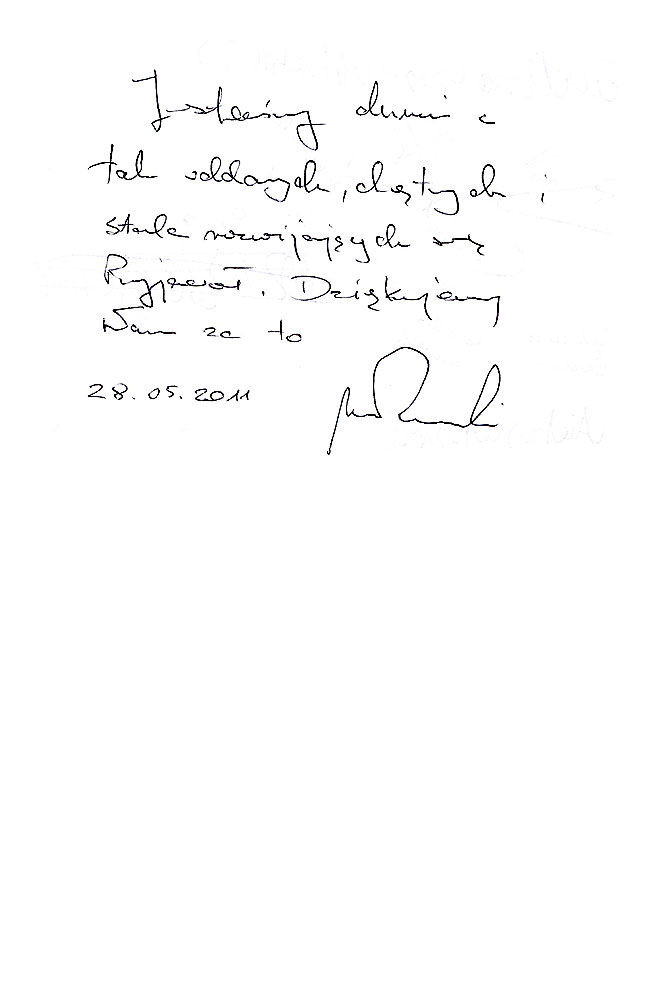 Jesteśmy dumni z
tak oddanych, chętnych i
stale rozwijających się
Przyjaciół. Dziękujemy
Wam za to
28.05.2011